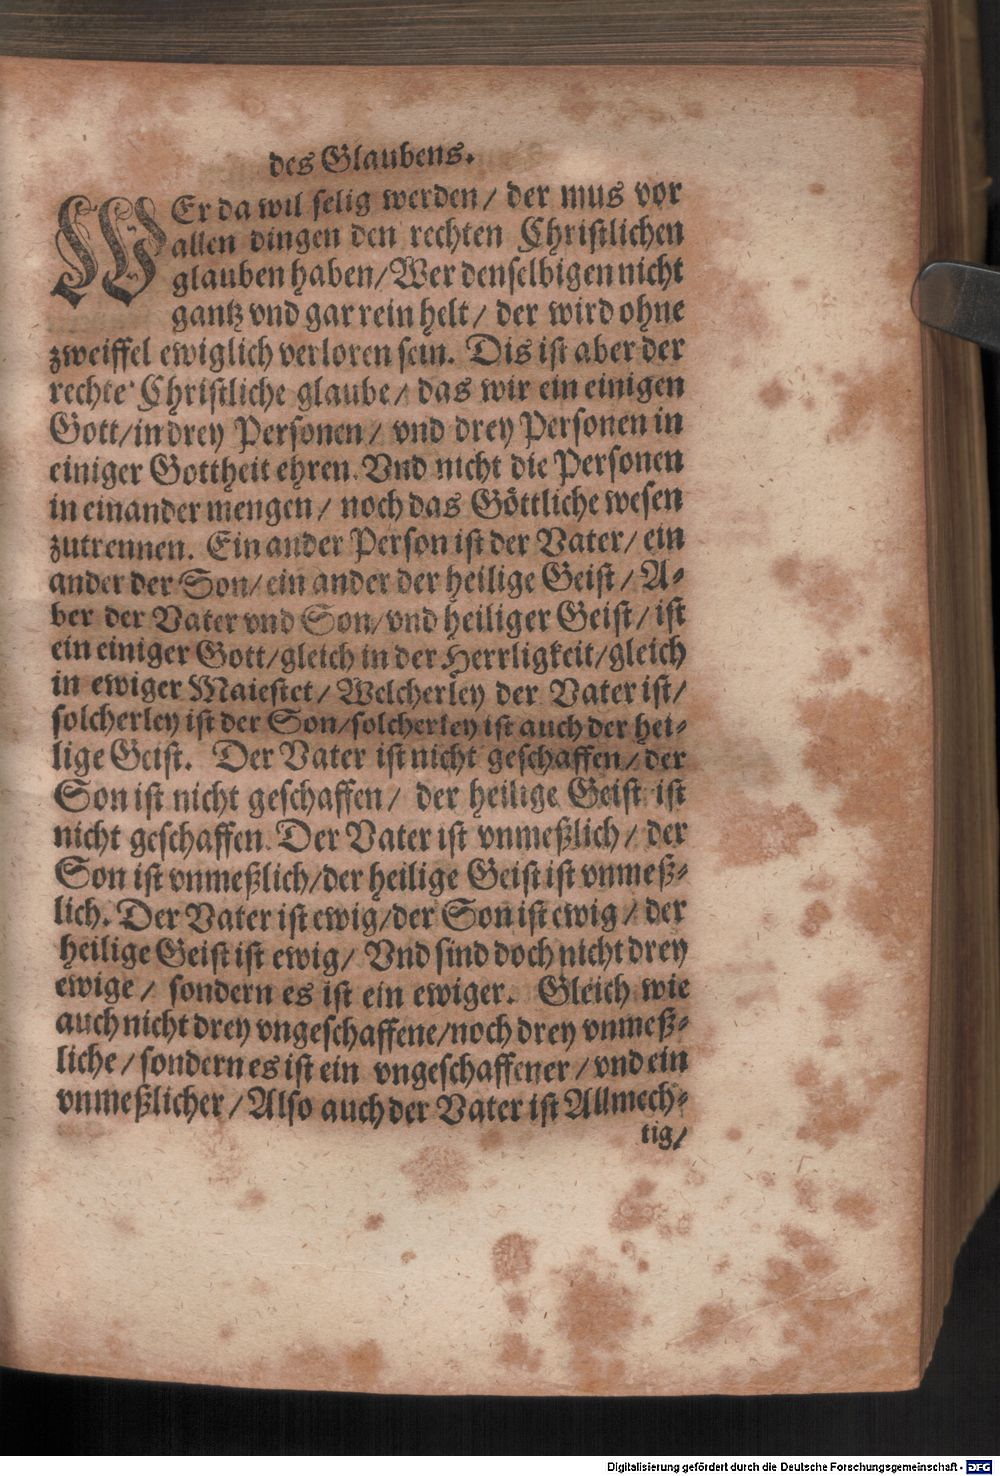 des Glaubens.
WEr da wil selig werden/ der mus vor
allen dingen den rechten Christlichen
glauben haben/ Wer denselbigen nicht
gantz vnd gar rein helt/ der wird ohne
zweiffel ewiglich verloren sein. Dis ist aber der
rechte Christliche glaube/ das wir ein einigen
Gott/ in drey Personen/ vnd drey Personen in
einiger Gottheit ehren. Vnd nicht die Personen
in einander mengen/ noch das Göttliche wesen
zutrennen. Ein ander Person ist der Vater/ ein
ander der Son/ ein ander der heilige Geist/ A-
ber der Vater vnd Son/ vnd heiliger Geist/ ist
ein einiger Gott/ gleich in der Herrligkeit/ gleich
in ewiger Maiestet/ Welcherley der Vater ist/
solcherley ist der Son/ solcherley ist auch der hei-
lige Geist. Der Vater ist nicht geschaffen/ der
Son ist nicht geschaffen/ der heilige Geist ist
nicht geschaffen. Der Vater ist vnmeßlich/ der
Son ist vnmeßlich/ der heilige Geist ist vnmeß-
lich. Der Vater ist ewig/ der Son ist ewig/ der
heilige Geist ist ewig/ Vnd sind doch nicht drey
ewige/ sondern es ist ein ewiger. Gleich wie
auch nicht drey vngeschaffene/ noch drey vnmeß-
liche/ sondern es ist ein vngeschaffener/ vnd ein
vnmeßlicher/ Also auch der Vater ist Allmech-
tig/
Digitalisierung gefördert durch die Deutsche Forschungsgemeinschaft - DFG